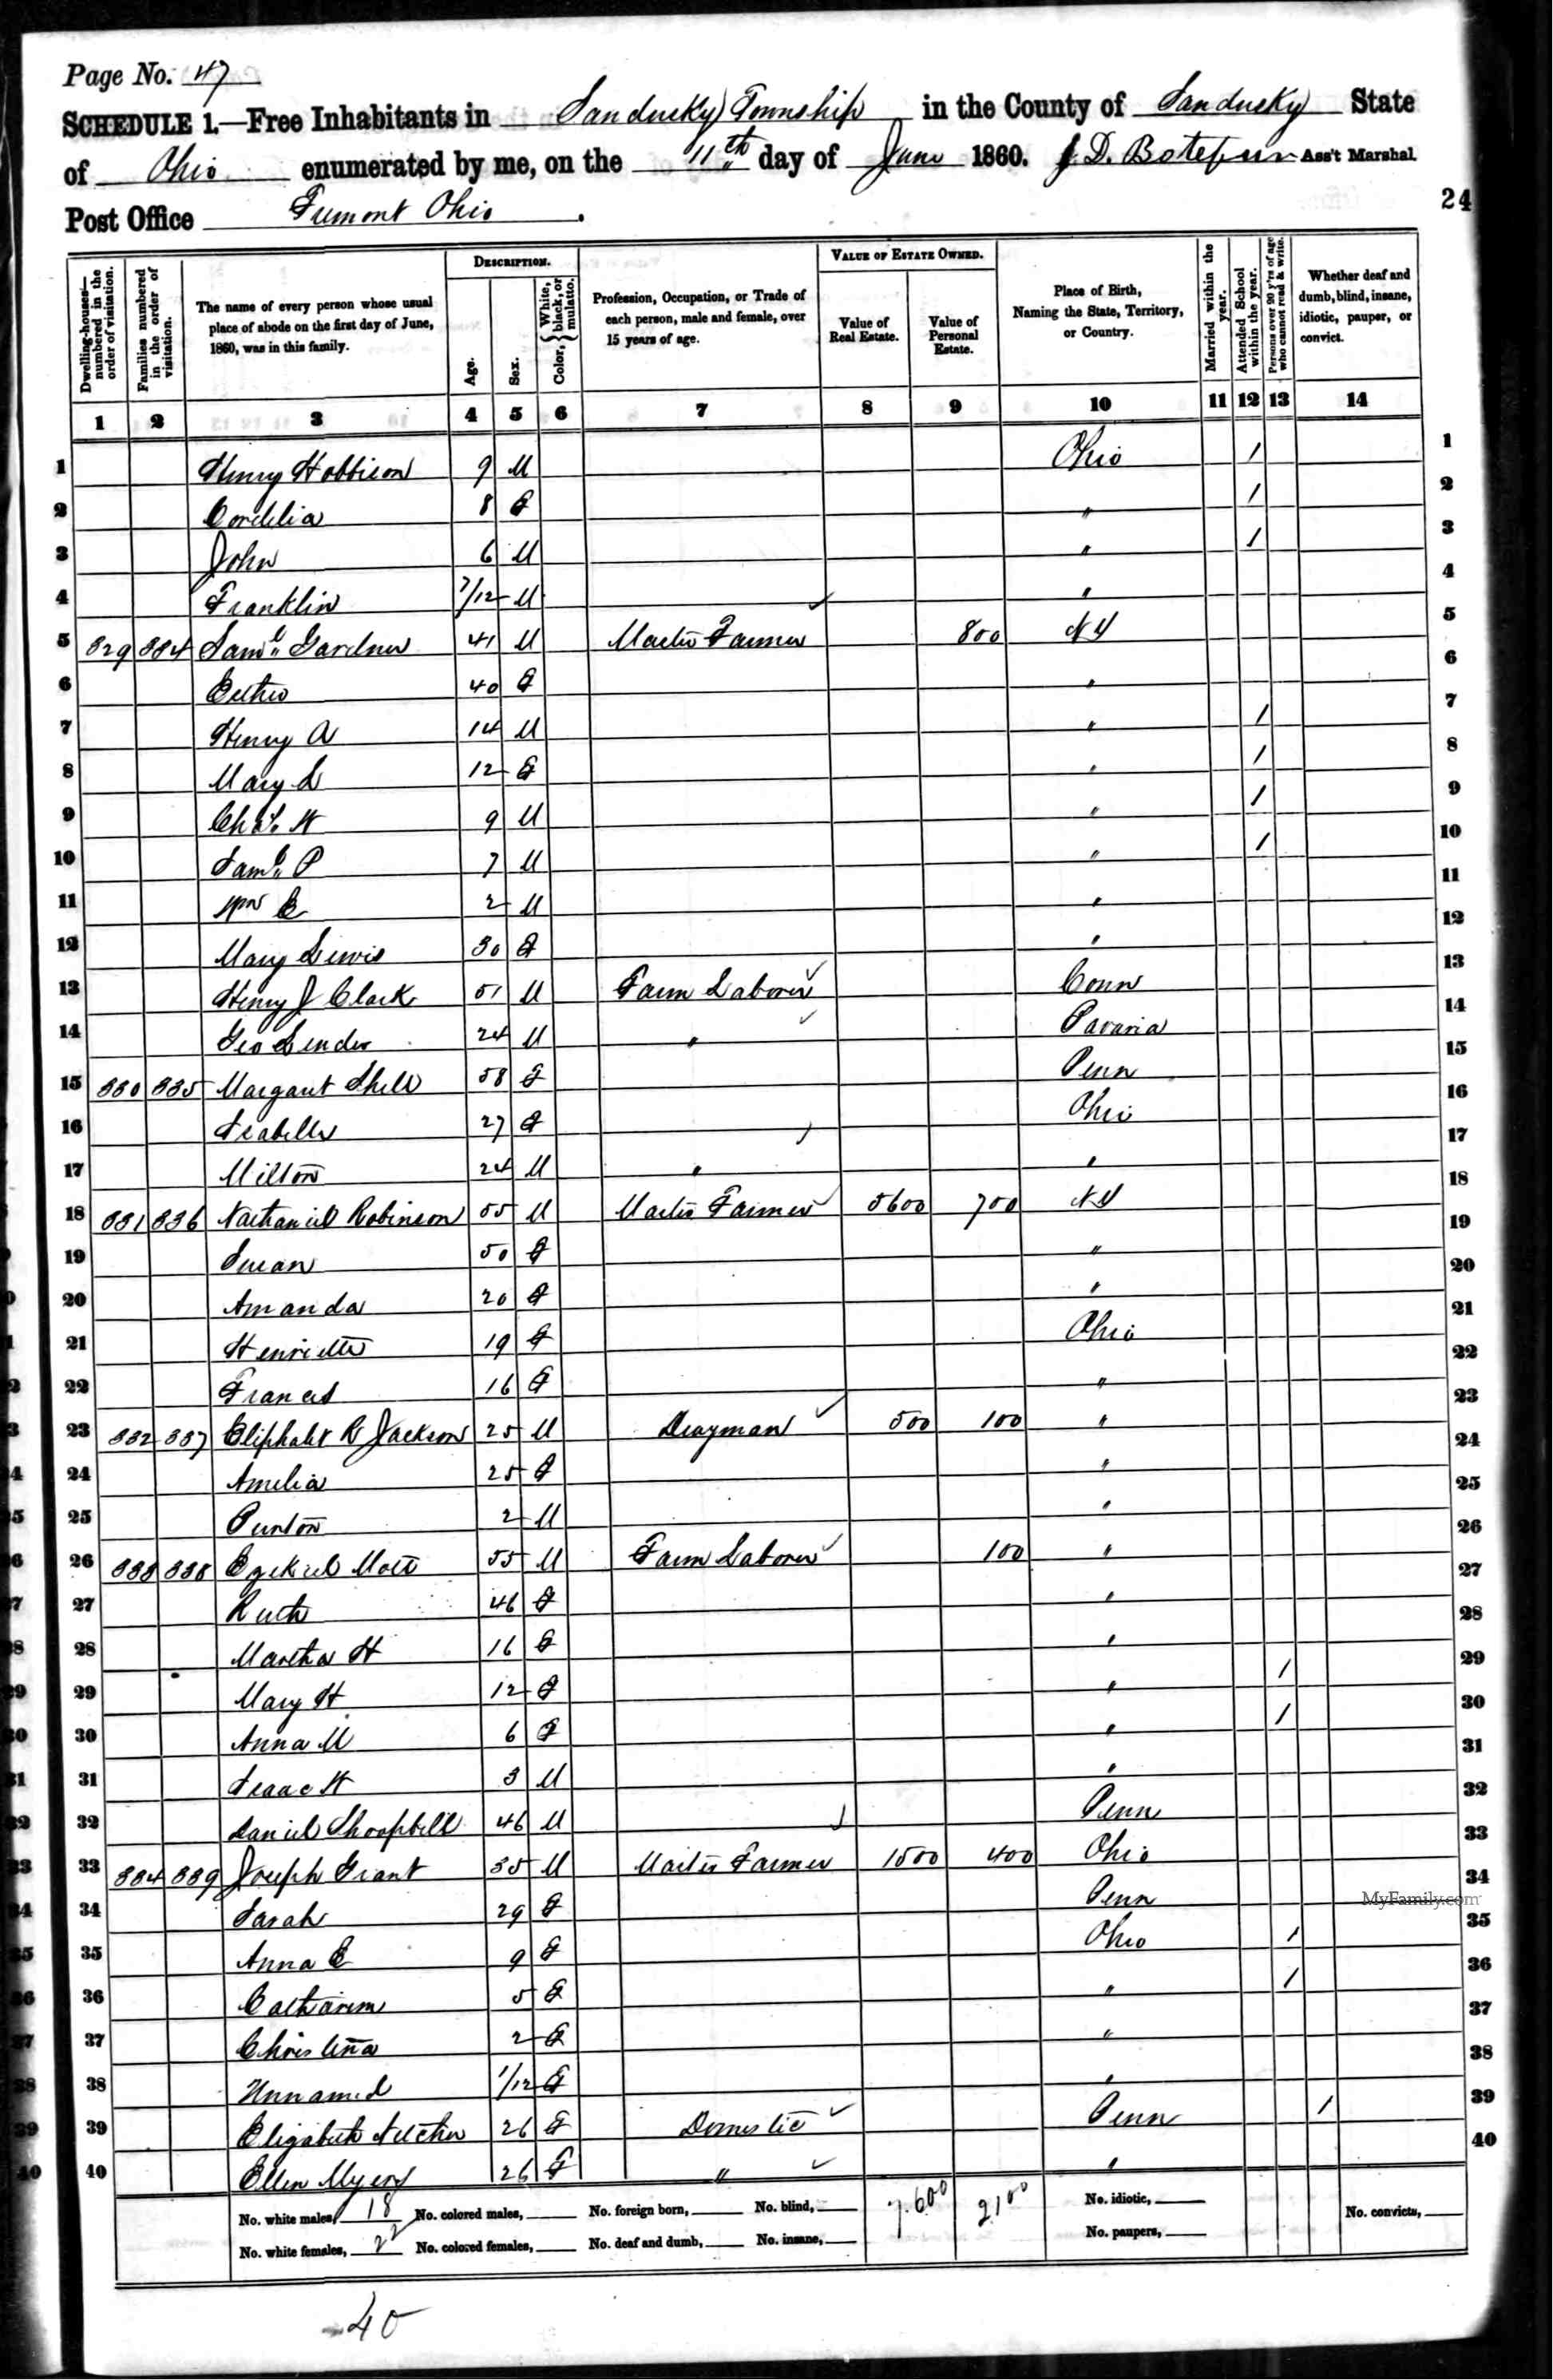 Page No. 47
SCHEDULE 1.—Free Inhabitants in Sandusky Township in the County of Sandusky State
of Ohio enumerated by me, on the 11th day of June 1860. J. D. Ass't Marshal.
Post Office Fremont Ohio.
24
Dwelling-houses—numbered in the order of visitation.
Families numbered in the order of visitation.
The name of every person whose usual place of abode on the first day of June, 1860, was in this family.
DESCRIPTION.
Age.
Sex.
Color, { White, black, or mulatto.
Profession, Occupation, or Trade of each person, male and female, over 15 years of age.
VALUE OF ESTATE OWNED.
Value of Real Estate.
Value of Personal Estate.
Place of Birth, Naming the State, Territory, or Country.
Married within the year.
Attended School within the year.
Persons over 20 y'rs of age who cannot read & write.
Whether deaf and dumb, blind, insane, idiotic, pauper, or convict.
1 2 3 4 5 6 7 8 9 10 11 12 13 14
1 Henry 9 M Ohio / 1
2 Cordelia 8 F " / 2
3 John 6 M " / 3
4 Franklin 7/12 M " 4
5 329 334 Saml. Gardner 41 M Master Farmer 800 NY 5
6 40 F " 6
7 Henry A 14 M " / 7
8 Mary L 12 F " / 8
9 Chas. H 9 M " / 9
10 Saml. P 7 M " / 10
11 Wm E 2 M " 11
12 Mary Lewis 30 F " 12
13 Henry J Clark 51 M Farm Laborer Conn 13
14 Geo 24 M " Bavaria 14
15 330 335 Margaret Shell 58 F Penn 15
16 Isabella 27 F Ohio 16
17 Milton 24 M " " 17
18 331 336 Nathaniel Robinson 55 M Master Farmer 5600 700 NY 18
19 Susan 50 F " 19
20 Amanda 20 F " 20
21 Henrietta 19 F Ohio 21
22 Frances 16 F " 22
23 332 337 Eliphalet R Jackson 25 M Drayman 500 100 " 23
24 Amelia 25 F " 24
25 2 M " 25
26 333 338 Ezekiel Mott 55 M Farm Laborer 100 " 26
27 Ruth 46 F " 27
28 Martha H 16 F " 28
29 Mary H 12 F " / 29
30 Anna M 6 F " / 30
31 Isaac H 3 M " 31
32 Daniel 46 M Penn 32
33 334 339 Joseph Grant 35 M Master Farmer 1500 400 Ohio 33
34 Sarah 29 F Penn 34
MyFamily.com
35 Anna E 9 F Ohio / 35
36 Catharine 5 F " / 36
37 Christina 2 F " 37
38 Unnamed 1/12 F " 38
39 Elizabeth 26 F Domestic Penn / 39
40 Ellen Myers 26 F " " 40
No. white males, 18 No. colored males, No. foreign born, No. blind, 7.600 2100 No. idiotic, No. convicts,
No. white females, 22 No. colored females, No. deaf and dumb, No. insane, No. paupers,
40